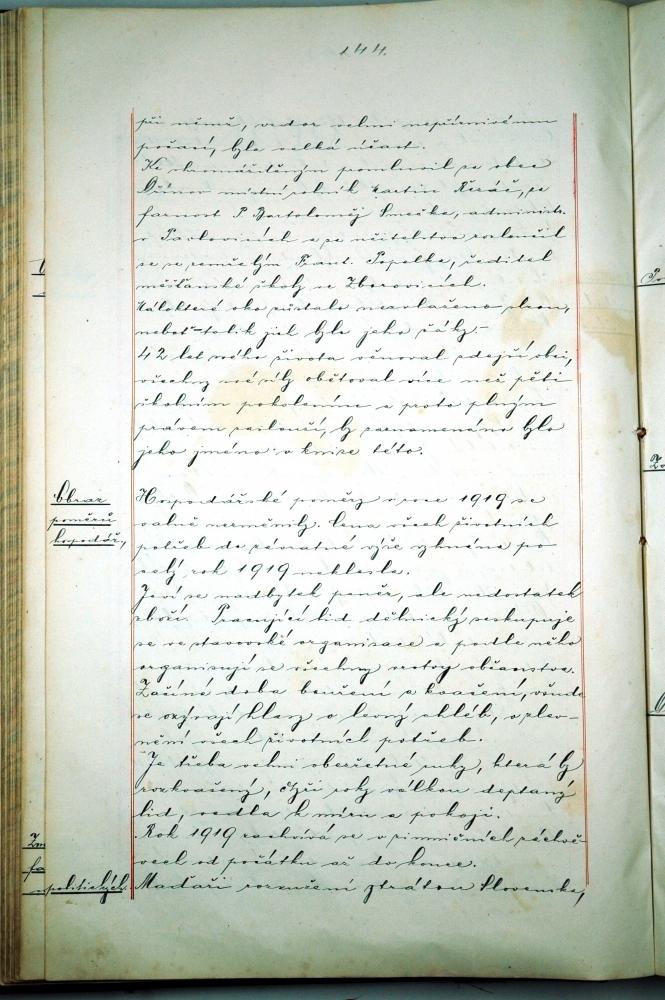 144.
při němž, vzdor velmi nepříznivému
počasí, byla velká účast.
Ke shromážděným promluvil za obec
místní rolník Martin za
farnost P. Bartoloměj Smečka, administr.
v Pačlavicích a za učitelstvo rozloučil
se se zemřelým Frant. Popelka, ředitel
měšťanské školy ve Zborovicích.
Málokteré oko zůstalo nezvlaženo slzou,
neboť - tolik jich bylo jeho žáky. -
42 let svého života věnoval zdejší obci,
všechny své síly obětoval více než pěti
školním pokolením a proto plným
právem zasloužil, by zaznamenáno bylo
jeho jméno v knize této.
Obraz
poměrů
hospodář.,
Hospodářské poměry v roce 1919 se
valně nezměnily. Cena všech životních
potřeb do závratné výše vyhnána po
celý rok 1919 neklesla.
Jeví se nadbytek peněz, ale nedostatek
zboží. Pracující lid dělnický seskupuje
se ve stavovské organisace a podle něho
organisují se všechny vrstvy občanstva.
Začíná doba bouření a kvašení, všude
se ozývají hlasy o levný chléb, o zlev-
nění všech životních potřeb.
Je třeba velmi obezřetné ruky, která by
rozkvašený, čtyři roky válkou deptaný
lid, vedla k míru a pokoji.
Rok 1919 zachvívá se v zimničních záchvě-
vech od počátku až do konce.
politických
Maďaři rozzuřeni ztrátou Slovenska,